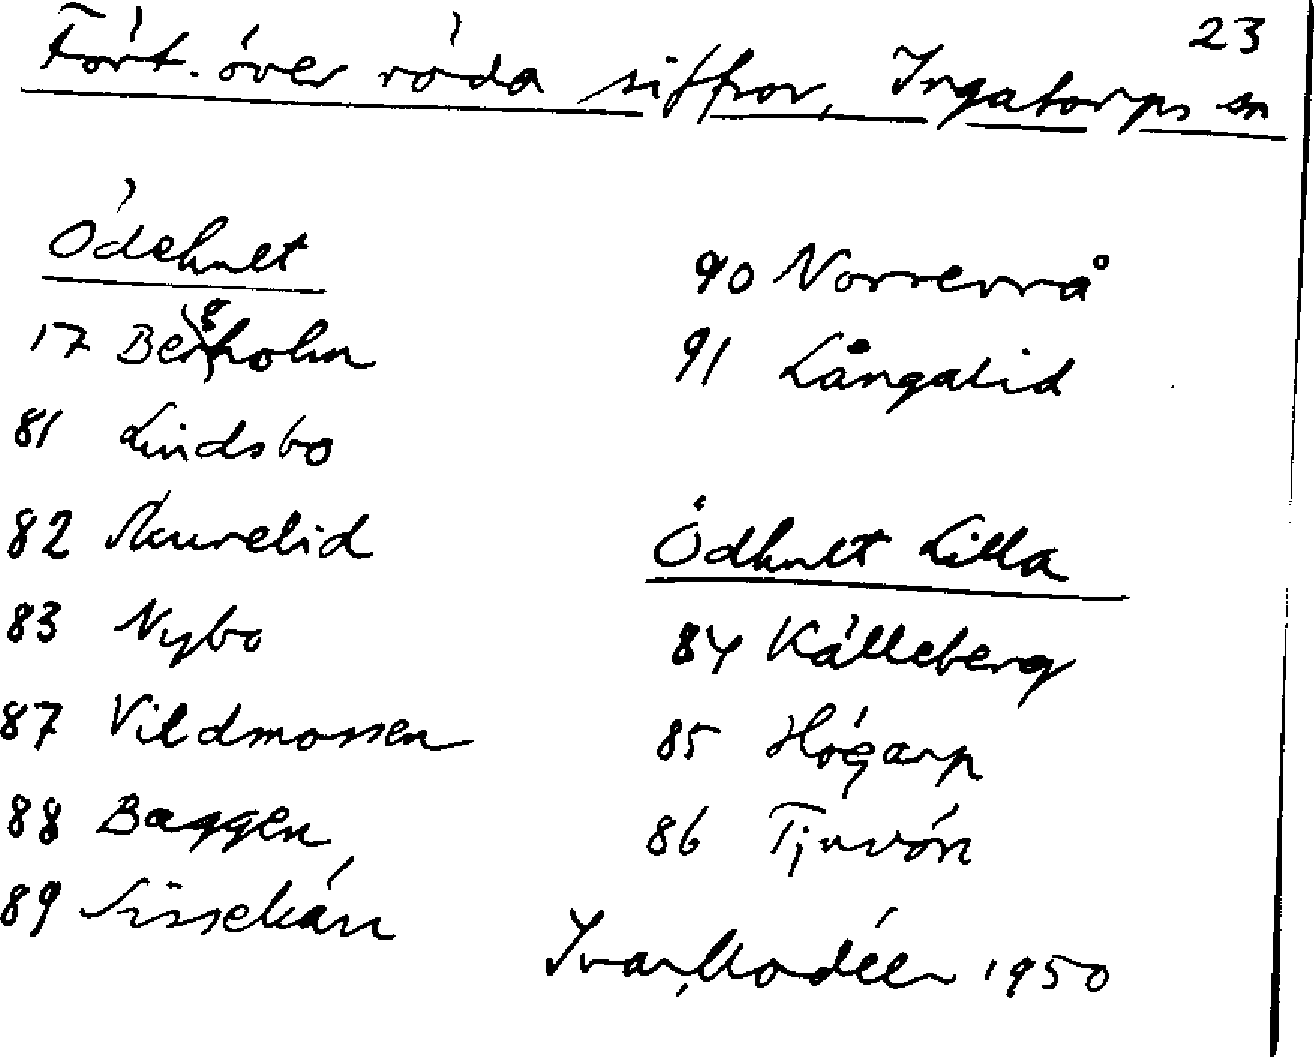 23
Fört. över röda siffror, Ingatorps sn
Ödehult
17 Bergholm
81 Lindsbo
82 Skurelid
83 Nybo
87 Vildmossen
88 Baggen
89 Sissekärr
90 Norrervrå
91 Långalid
Ödhult Lilla
84 Källeberg
85 Högarp
86 Tjuvön
Ivar Modéer 1950